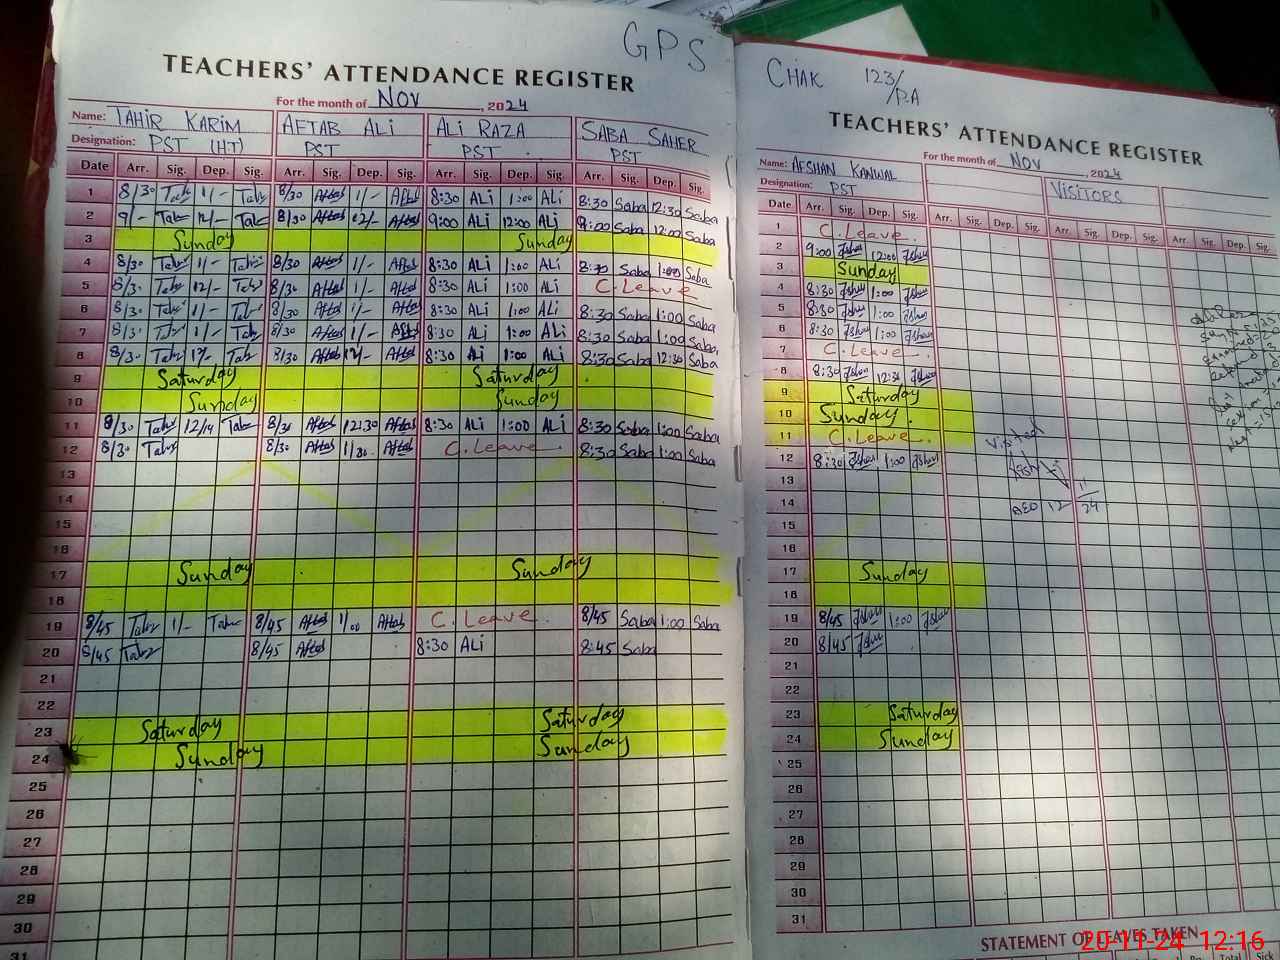 GPS
TEACHERS' ATTENDANCE REGISTER
For the month of Nov, 2024
Name: TAHIR KARIM AFTAB ALI ALI RAZA SABA SAHER
Designation: PST (HT) PST PST PST
Date Arr. Sig. Dep. Sig. Arr. Sig. Dep. Sig. Arr. Sig. Dep. Sig. Arr. Sig. Dep. Sig.
1 8/30 1/- 8/30 Aftab 1/- Aftab 8:30 ALi 1:00 ALi 8:30 Saba 12:30 Saba
2 9/- 12/- 8/30 Aftab 12/- Aftab 9:00 ALi 12:00 ALi 9:00 Saba 12:00 Saba
3 Sunday Sunday
4 8/30 1/- 8/30 Aftab 1/- Aftab 8:30 ALi 1:00 ALi 8:30 Saba 1:00 Saba
5 8/30 12/- 8/30 Aftab 1/- Aftab 8:30 ALi 1:00 ALi C. Leave
6 8/30 1/- 8/30 Aftab 1/- Aftab 8:30 ALi 1:00 ALi 8:30 Saba 1:00 Saba
7 8/30 1/- 8/30 Aftab 1/- Aftab 8:30 ALi 1:00 ALi 8:30 Saba 1:00 Saba
8 8/30 8/30 Aftab Aftab 8:30 ALi 1:00 ALi 8:30 Saba 12:30 Saba
9 Saturday Saturday
10 Sunday Sunday
11 8/30 8/30 Aftab 12:30 Aftab 8:30 ALi 1:00 ALi 8:30 Saba 1:00 Saba
12 8/30 8/30 Aftab Aftab C. Leave 8:30 Saba 1:00 Saba
13
14
15
16
17 Sunday Sunday
18
19 8/45 1/- 8/45 Aftab 1/00 Aftab C. Leave 8/45 Saba 1:00 Saba
20 8/45 8/45 Aftab 8:30 ALi 8:45 Saba
21
22
23 Saturday Saturday
24 Sunday Sunday
25
26
27
28
29
30
31
CHAK 123/
P.A
TEACHERS' ATTENDANCE REGISTER
For the month of Nov, 2024
Name: AFSHAN KANWAL VISITORS
Designation: PST
Date Arr. Sig. Dep. Sig. Arr. Sig. Dep. Sig. Arr. Sig. Dep. Sig. Arr. Sig. Dep. Sig.
1 C. Leave
2 9:00 12:00
3 Sunday
4 8:30 1:00
5 8:30 1:00
6 8:30 1:00
7 C. Leave
8 8:30 12:30
9 Saturday
10 Sunday
11 C. Leave
12 8:30 1:00
Visited
AEO 12/11/24
13
14
15
16
17 Sunday
18
19 8/45 1:00
20 8/45
21
22
23 Saturday
24 Sunday
25
26
27
28
29
30
31
STATEMENT OF LEAVES TAKEN
Total Sick
20-11-24 12:16